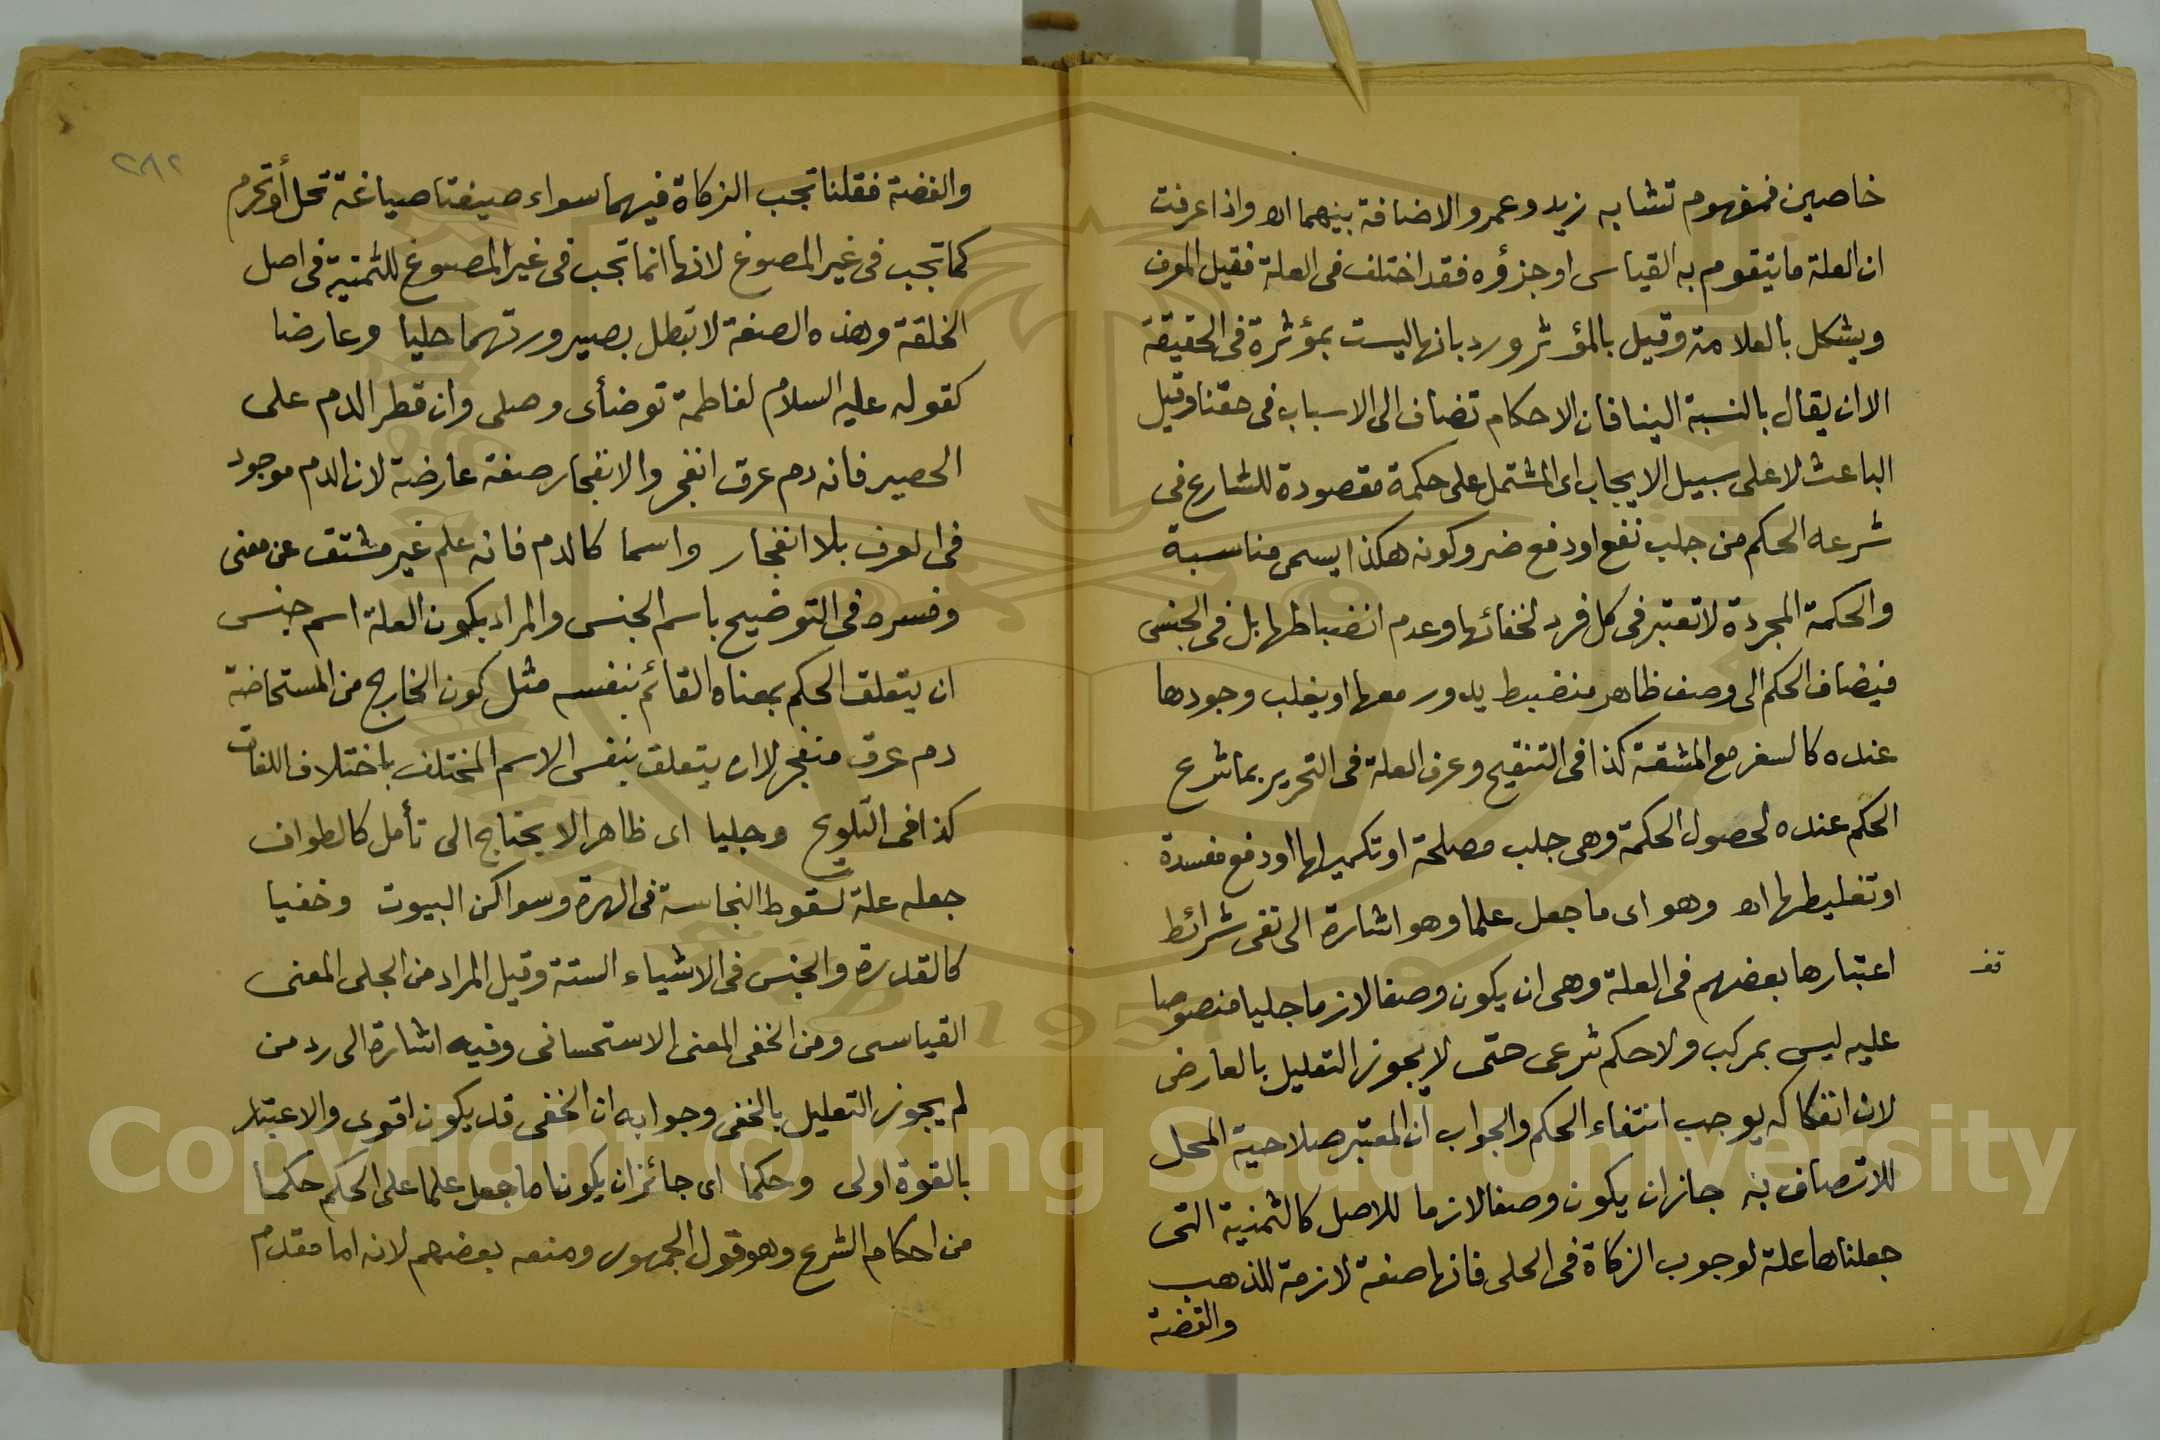 خاصين فمفهوم تشابه زيد وعمرو الاضافة بينهما اه واذا عرفت
ان العلة ما يتقوم به القياس او جزؤه فقد اختلف فى العلة فقيل المعرف
ويشكل بالعلامة وقيل بالمؤثر ورد بانها ليست بمؤثرة فى الحقيقة
الا ان يقال بالنسبة الينا فان الاحكام تضاف الى الاسباب فى حقنا وقيل
الباعث لا على سبيل الايجاب اى المشتمل على حكمة مقصودة للشارع فى
شرعه الحكم من جلب نفع او دفع ضر وكونه هكذا يسمى مناسبة
والحكمة المجردة لا تعتبر فى كل فرد لخفائها وعدم انضباطها بل فى الجنس
فيضاف الحكم الى وصف ظاهر منضبط يدور معها او يغلب وجودها
عنده كالسفر مع المشقة كذا فى التنقيح وعرف العلة فى التحرير بما شرع
الحكم عنده لحصول الحكمة وهى جلب مصلحة او تكميلها او دفع مفسدة
او تغليطها اه وهو اى ما جعل علما وهو اشارة الى نفى شرائط
اعتبارها بعضهم فى العلة وهى ان يكون وصفا لازما جليا منصوصا
قف
عليه ليس بمركب ولا حكم شرعى حتى لا يجوز التعليل بالعارض
لان انفكاكه يوجب انتفاء الحكم والجواب ان المعتبر صلاحية المحل
للاتصاف به جاز ان يكون وصفا لازما للاصل كالثمنية التى
جعلناها علة لوجوب الزكاة فى الحلى فانها صفة لازمة للذهب
والفضة
٢٨٢
والفضة فقلنا تجب الزكاة فيهما سواء صيغتا صياغة تحل أو تحرم
كما تجب فى غير المصوغ لانها انما تجب فى غير المصوغ للثمنية فى اصل
الخلقة وهذه الصفة لا تبطل بصيرورتهما حليا وعارضا
كقوله عليه السلام لفاطمة توضأى وصلى وان قطر الدم على
الحصير فانه دم عرق انفجر والانفجار صفة عارضة لان الدم موجود
فى العرف بلا انفجار واسما كالدم فانه علم غير مشتق عن معنى
وفسره فى التوضيح باسم الجنس والمراد بكون العلة اسم جنس
ان يتعلق الحكم بمعناه القائم بنفسه مثل كون الخارج من المستحاضة
دم عرق منفجر لا ان يتعلق بنفس الاسم المختلف باختلاف اللغات
كذا فى التلويح وجليا اى ظاهرا لا يحتاج الى تأمل كالطواف
جعله علة لسقوط النجاسة فى الهرة وسواكن البيوت وخفيا
كالقدرة والجنس فى الاشياء الستة وقيل المراد من الجلى المعنى
القياسى ومن الخفى المعنى الاستحسانى وفيه اشارة الى رد من
لم يجوز التعليل بالخفى وجوابه ان الخفى قد يكون اقوى والاعتبار
بالقوة اولى وحكما اى جائز ان يكون ما جعل علما على الحكم حكما
من احكام الشرع وهو قول الجمهور ومنعه بعضهم لانه اما مقدم
Copyright © King Saud University
1957